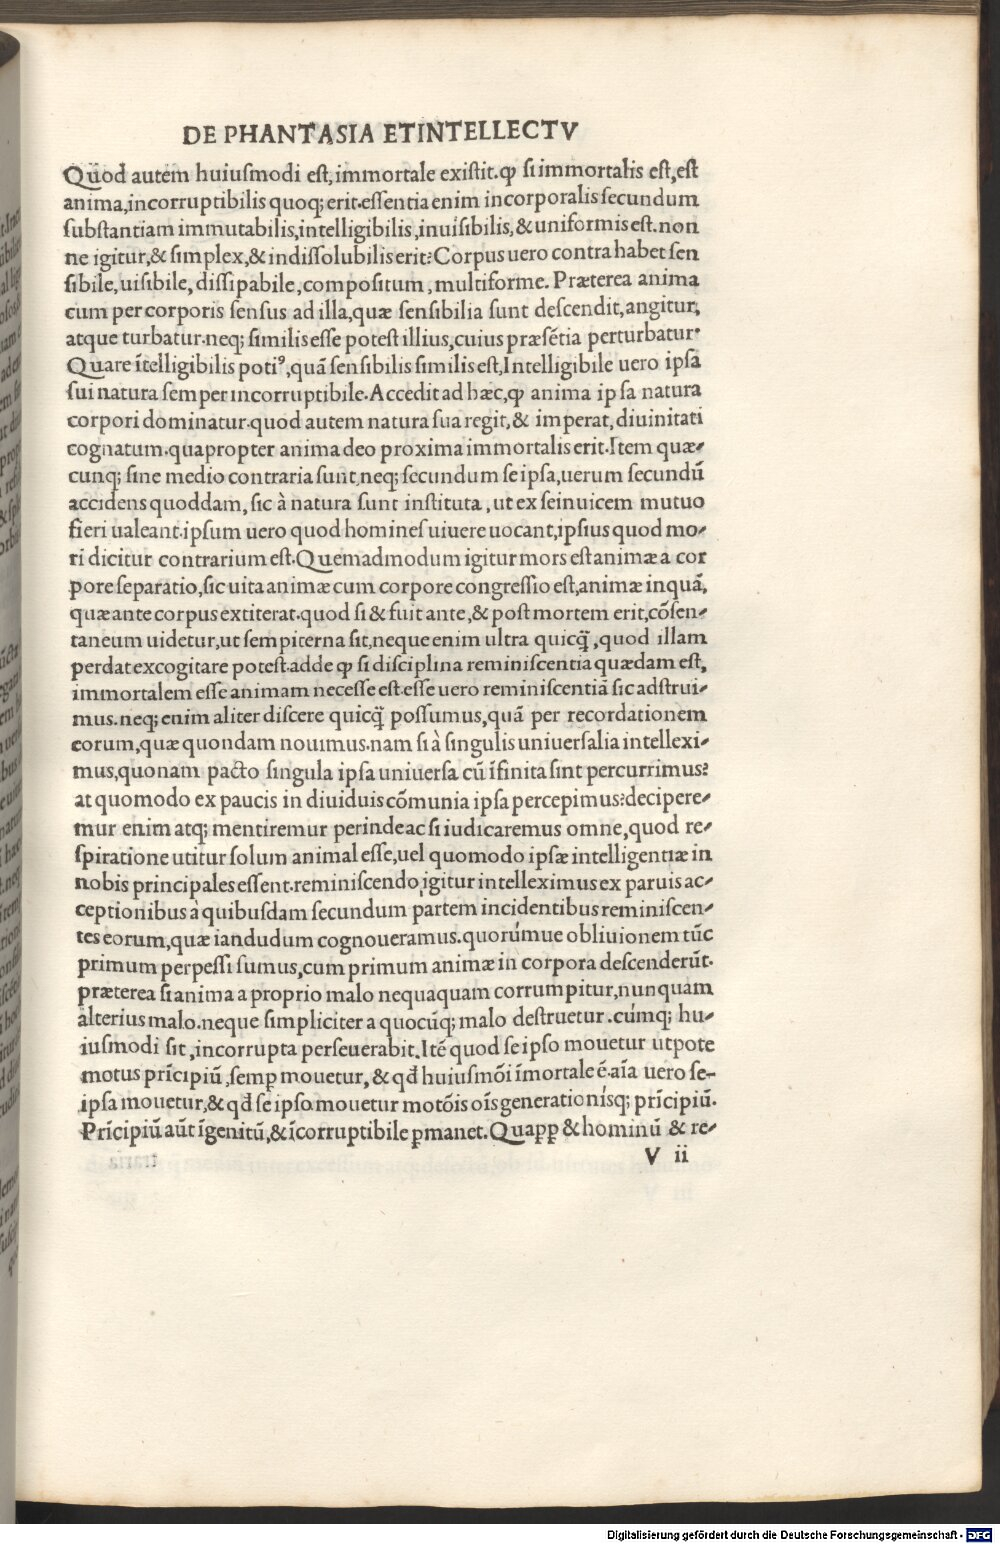 DE PHANTASIA ET INTELLECTV
Quod autem huiusmodi est, immortale existit. ꝙ si immortalis est, est
anima, incorruptibilis quoq; erit. essentia enim incorporalis secundum
substantiam immutabilis, intelligibilis, inuisibilis, & uniformis est. non
ne igitur, & simplex, & indissolubilis erit? Corpus uero contra habet sen
sibile, uisibile, dissipabile, compositum, multiforme. Præterea anima
cum per corporis sensus ad illa, quæ sensibilia sunt descendit, angitur,
atque turbatur. neq; similis esse potest illius, cuius præsẽtia perturbatur.
Quare ĩtelligibilis poti⁹, quã sensibilis similis est, Intelligibile uero ipsa
sui natura semper incorruptibile. Accedit ad hæc, ꝙ anima ipsa natura
corpori dominatur. quod autem natura sua regit, & imperat, diuinitati
cognatum. quapropter anima deo proxima immortalis erit. Item quæ-
cunq; sine medio contraria sunt, neq; secundum se ipsa, uerum secundũ
accidens quoddam, sic à natura sunt instituta, ut ex seinuicem mutuo
fieri ualeant. ipsum uero quod homines uiuere uocant, ipsius quod mo-
ri dicitur contrarium est. Quemadmodum igitur mors est animæ a cor
pore separatio, sic uita animæ cum corpore congressio est, animæ inquã,
quæ ante corpus extiterat. quod si & fuit ante, & post mortem erit, cõsen-
taneum uidetur, ut sempiterna sit, neque enim ultra quicq̃, quod illam
perdat excogitare potest. adde ꝙ si disciplina reminiscentia quædam est,
immortalem esse animam necesse est. esse uero reminiscentiã sic adstrui-
mus. neq; enim aliter discere quicq̃ possumus, quã per recordationem
eorum, quæ quondam nouimus. nam si à singulis uniuersalia intellexi-
mus, quonam pacto singula ipsa uniuersa cũ ĩfinita sint percurrimus?
at quomodo ex paucis in diuiduis cõmunia ipsa percepimus? decipere-
mur enim atq; mentiremur perinde ac si iudicaremus omne, quod re-
spiratione utitur solum animal esse, uel quomodo ipsæ intelligentiæ in
nobis principales essent. reminiscendo igitur intelleximus ex paruis ac-
ceptionibus à quibusdam secundum partem incidentibus reminiscen-
tes eorum, quæ iandudum cognoueramus. quorúmue obliuionem tũc
primum perpessi sumus, cum primum animæ in corpora descenderũt.
præterea si anima a proprio malo nequaquam corrumpitur, nunquam
alterius malo. neque simpliciter a quocũq; malo destruetur. cúmq; hu-
iusmodi sit, incorrupta perseuerabit. Itẽ quod se ipso mouetur utpote
motus prĩcipiũ, semꝑ mouetur, & qđ huiusmõi ĩmortale ẽ. aĩa uero se-
ipsa mouetur, & qđ se ipso mouetur motõis oĩs generationísq; prĩcipiũ.
Prĩcipiũ aũt ĩgenitũ, & ĩcorruptibile ꝑmanet. Quaꝓꝑ & hominũ & re-
V ii
Digitalisierung gefördert durch die Deutsche Forschungsgemeinschaft - DFG